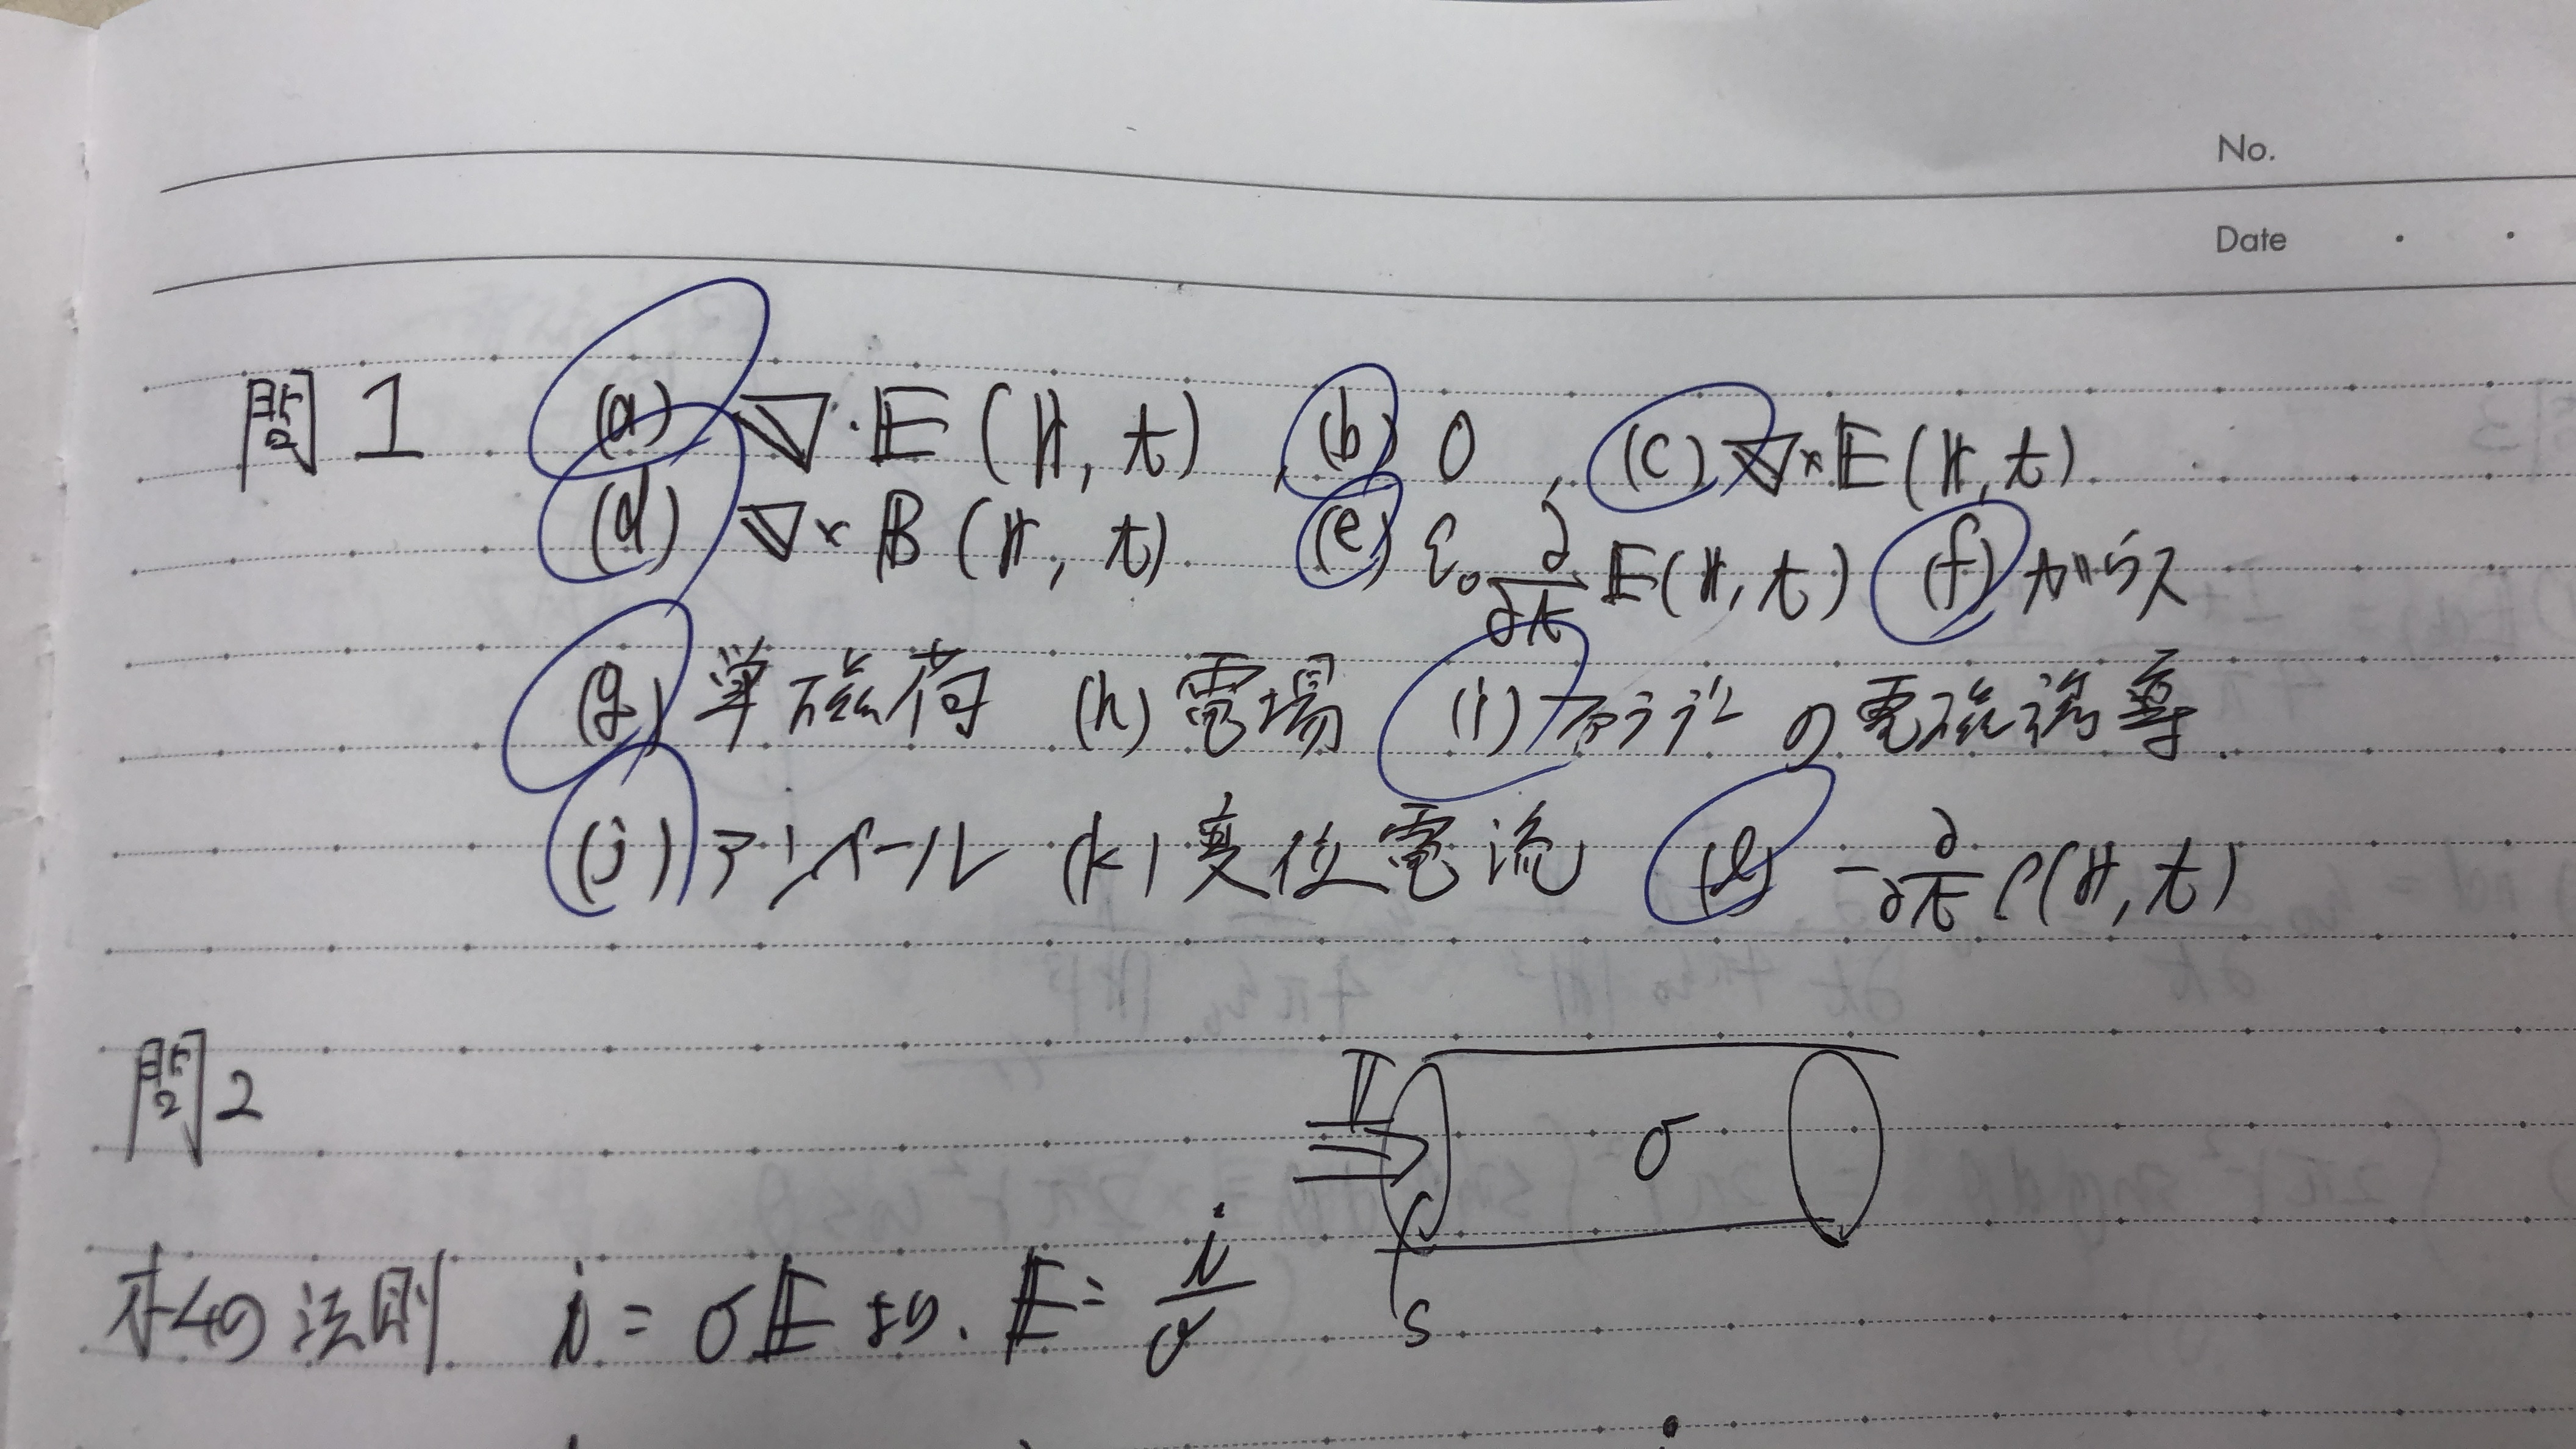 No.
Date
問1 (a) ∇・E(r, t), (b) 0, (c) ∇×E(r, t)
(d) ∇×B(r, t). (e) ε₀ ∂/∂t E(r, t) (f) ガウス
(g) 単磁荷 (h) 電場 (i) ファラデーの電磁誘導.
(j) アンペール (k) 変位電流 (l) -∂/∂t ρ(r, t)
問2
I
σ
S
オームの法則 i = σE より. E = i/σ